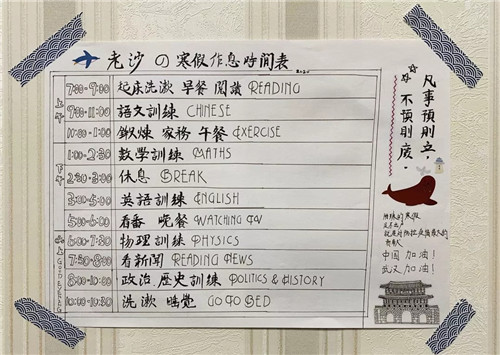 老沙の寒假作息時間表
2020
上午
7:00-9:00 起床洗漱 早餐 閱讀 READING
9:00-11:00 語文訓練 CHINESE
11:00-1:00 鍛煉 家務 午餐 EXERCISE
下午
1:00-2:30 數學訓練 MATHS
2:30-3:00 休息 BREAK
3:00-5:00 英語訓練 ENGLISH
5:00-6:00 看番 晚餐 WATCHING TV
晚上
6:00-7:30 物理訓練 PHYSICS
7:30-8:00 看新聞 READING NEWS
8:00-10:00 政治 歷史訓練 POLITICS & HISTORY
10:00-10:30 洗漱 睡覺 GO TO BED
凡事預則立，
不預則廢。
特殊的寒假
中国 加油！
武汉 加油！